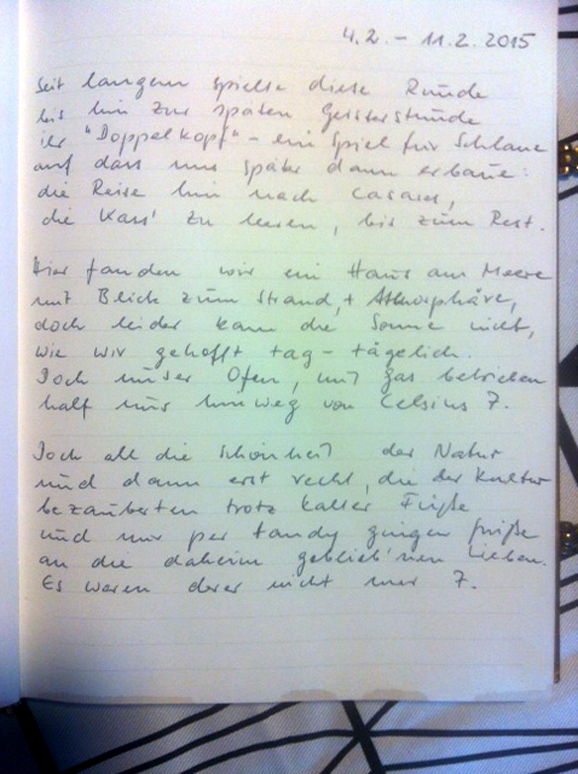 4.2. – 11.2. 2015
Seit langem spielte diese Runde
bis hin zur späten Geisterstunde
ihr "Doppelkopf" – ein Spiel für Schlaue
auf dass uns später dann erbaue:
die Reise hin nach Casares,
die Kass' zu leeren, bis zum Rest.
Hier fanden wir ein Haus am Meere
mit Blick zum Strand, + Atmosphäre,
doch leider kam die Sonne nicht,
wie wir gehofft tag-tägelich.
Doch unser Ofen, mit Gas betrieben
half uns hinweg von Celsius 7.
Doch all die Schönheit der Natur
und dann erst recht, die der Kultur
bezauberten trotz kalter Füße
und nur per Handy gingen Grüße
an die daheim geblieb'nen Lieben.
Es waren derer nicht nur 7.